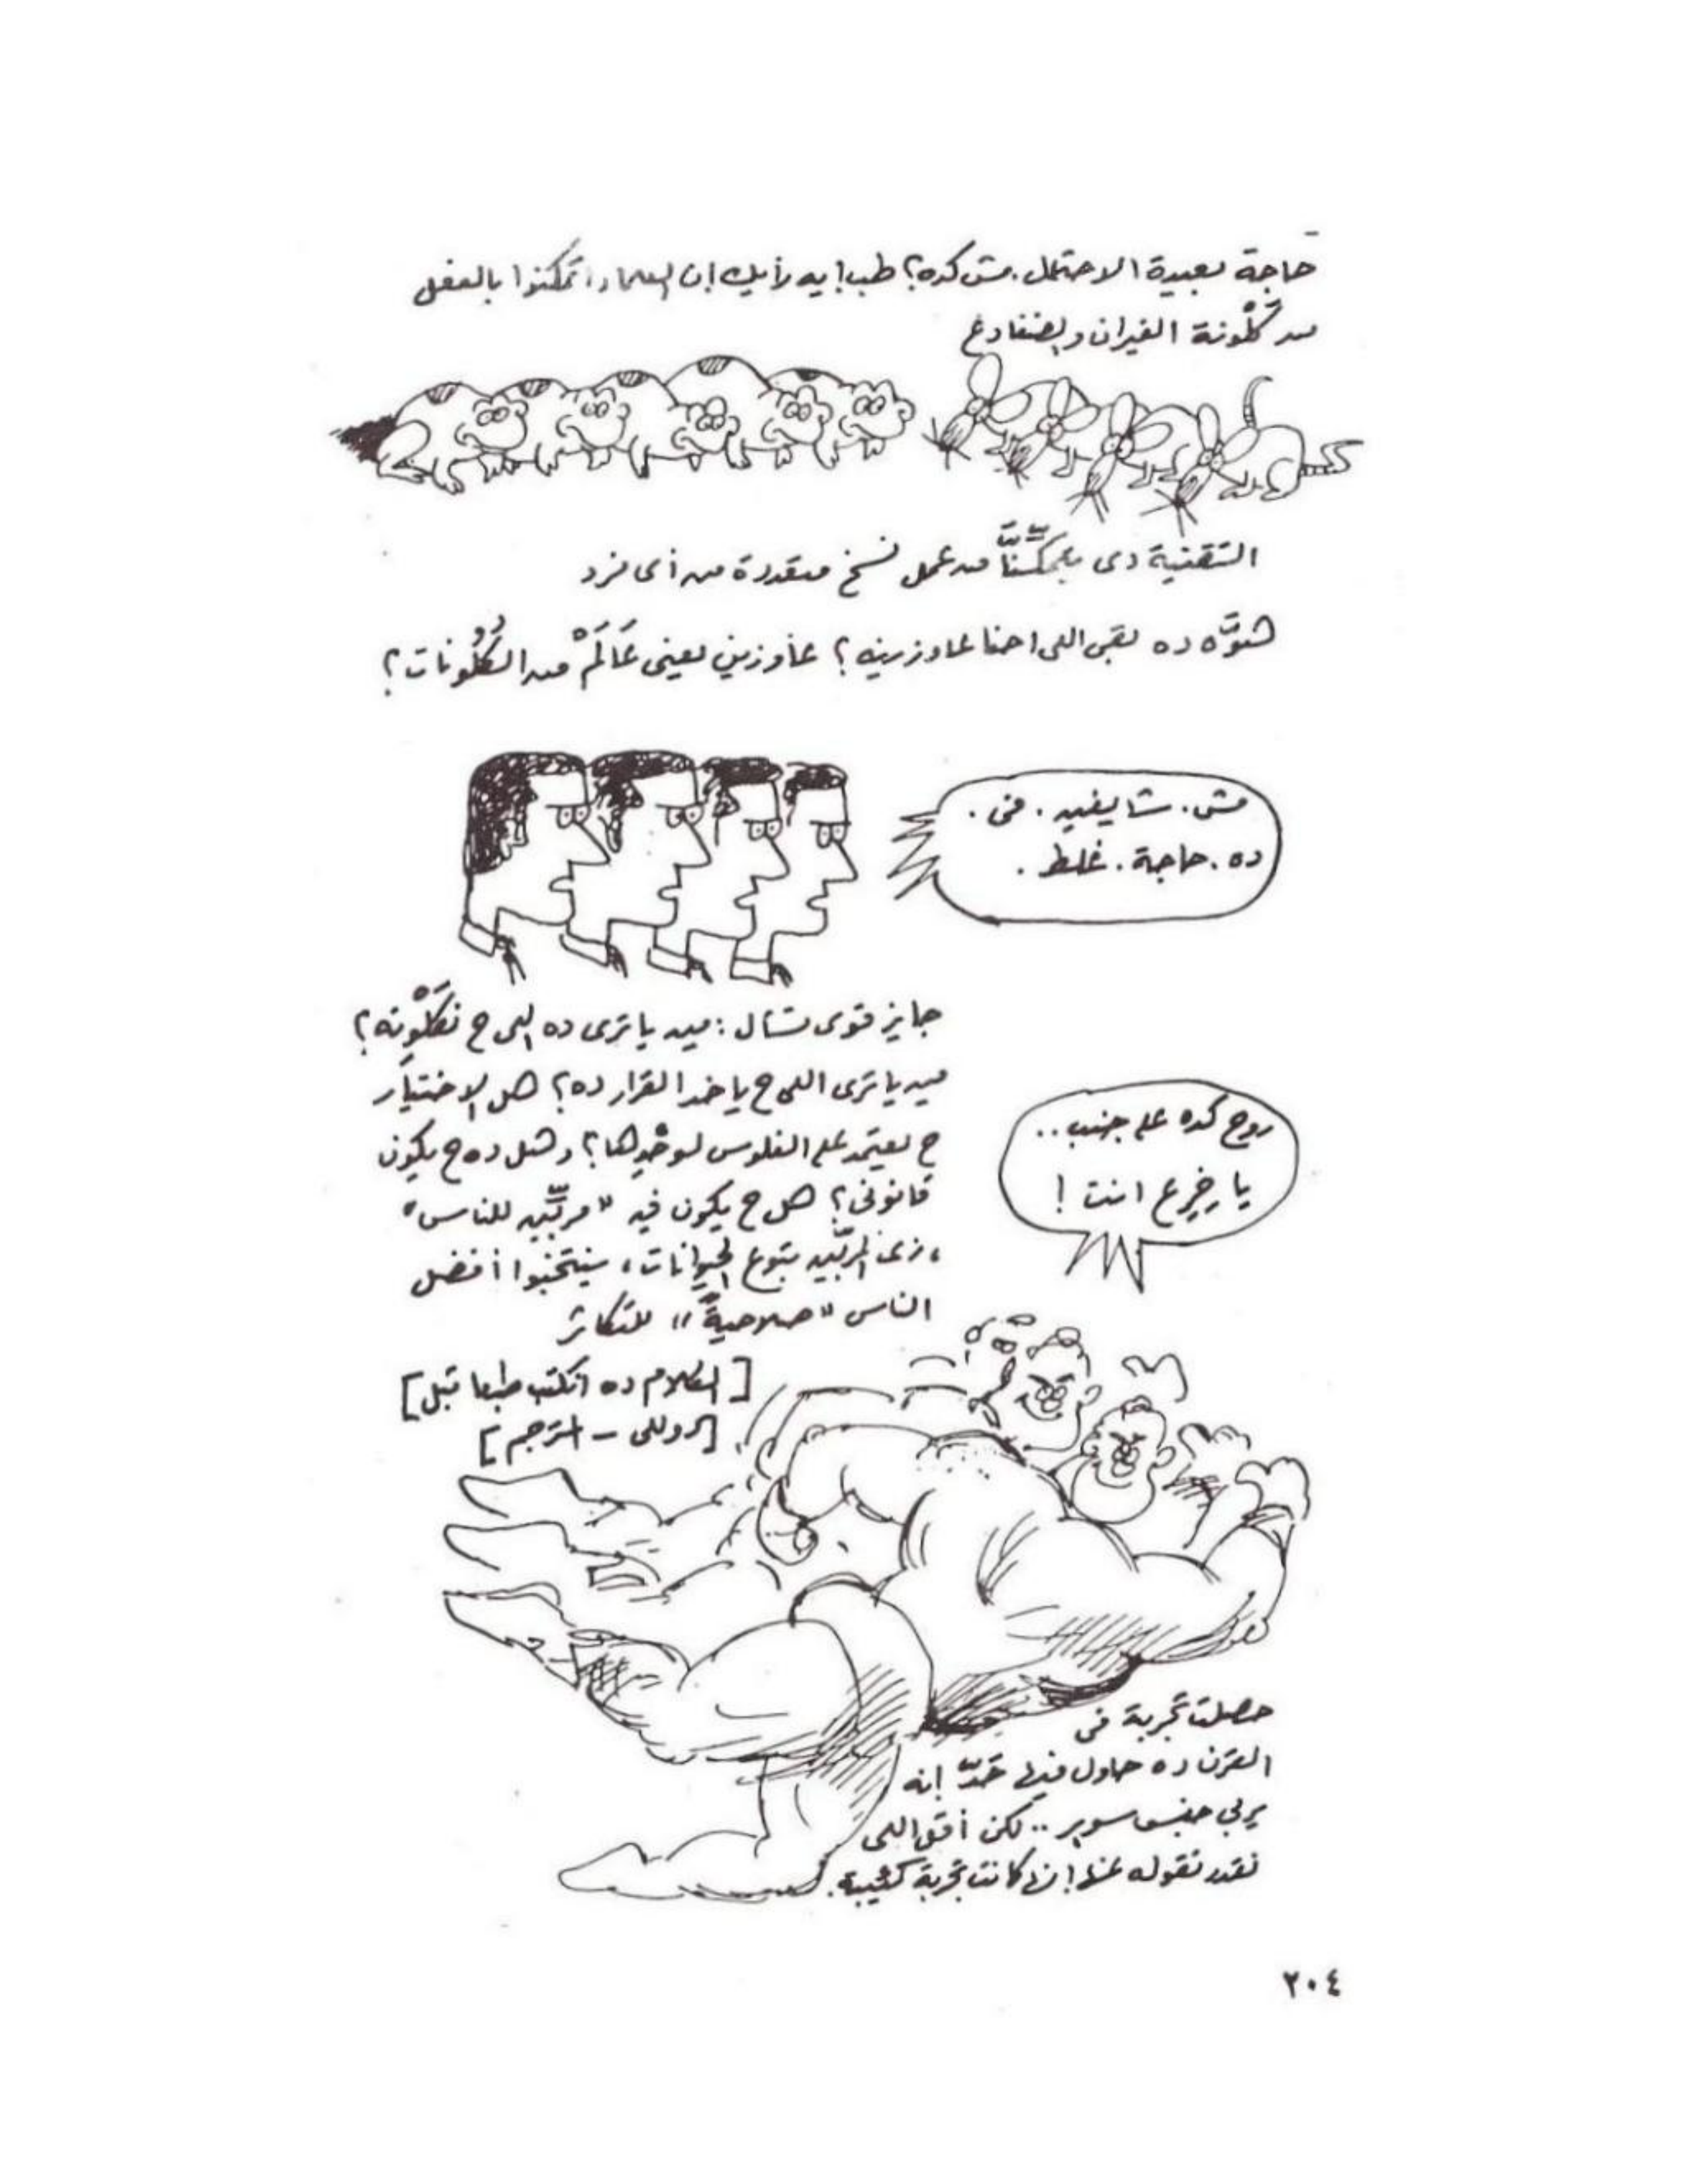 حاجة بعيدة الاحتمال. مش كده؟ طب إيه رأيك إن العلماء اتمكنوا بالفعل
من كَلْونة الفيران والضفادع
التقنية دى بتمكنَّا من عمل نسخ متعددة من أى فرد
هُوَّه ده بقى اللى احنا عاوزينه؟ عاوزين يعنى عَالَمْ من الكُلُونات؟
مش. شايفين. فى.
ده. حاجة. غلط.
جايز قوى تسأل: مين ياترى ده اللى ح نكَلْونه؟
مين ياترى اللى ح ياخد القرار ده؟ هل الاختيار
ح يعتمد على الفلوس لوحْدها؟ وهل ده ح يكون
قانونى؟ هل ح يكون فيه "مربّين للناس"
، زى المربّين بتوع الحيوانات، ينتخبوا أفضل
الناس "صلاحيةً" للتكاثر
روح كده على جنب..
يا خِرِع انت!
[الكلام ده اتكتب طبعا قبل]
[دوللى - المترجم]
حصلت تجربة فى
القرن ده حاول فيها حَدّ إنه
يربى جنس سوپر.. لكن أقل اللى
نقدر نقوله عنها إنها كانت تجربة كئيبة.
٢٠٤